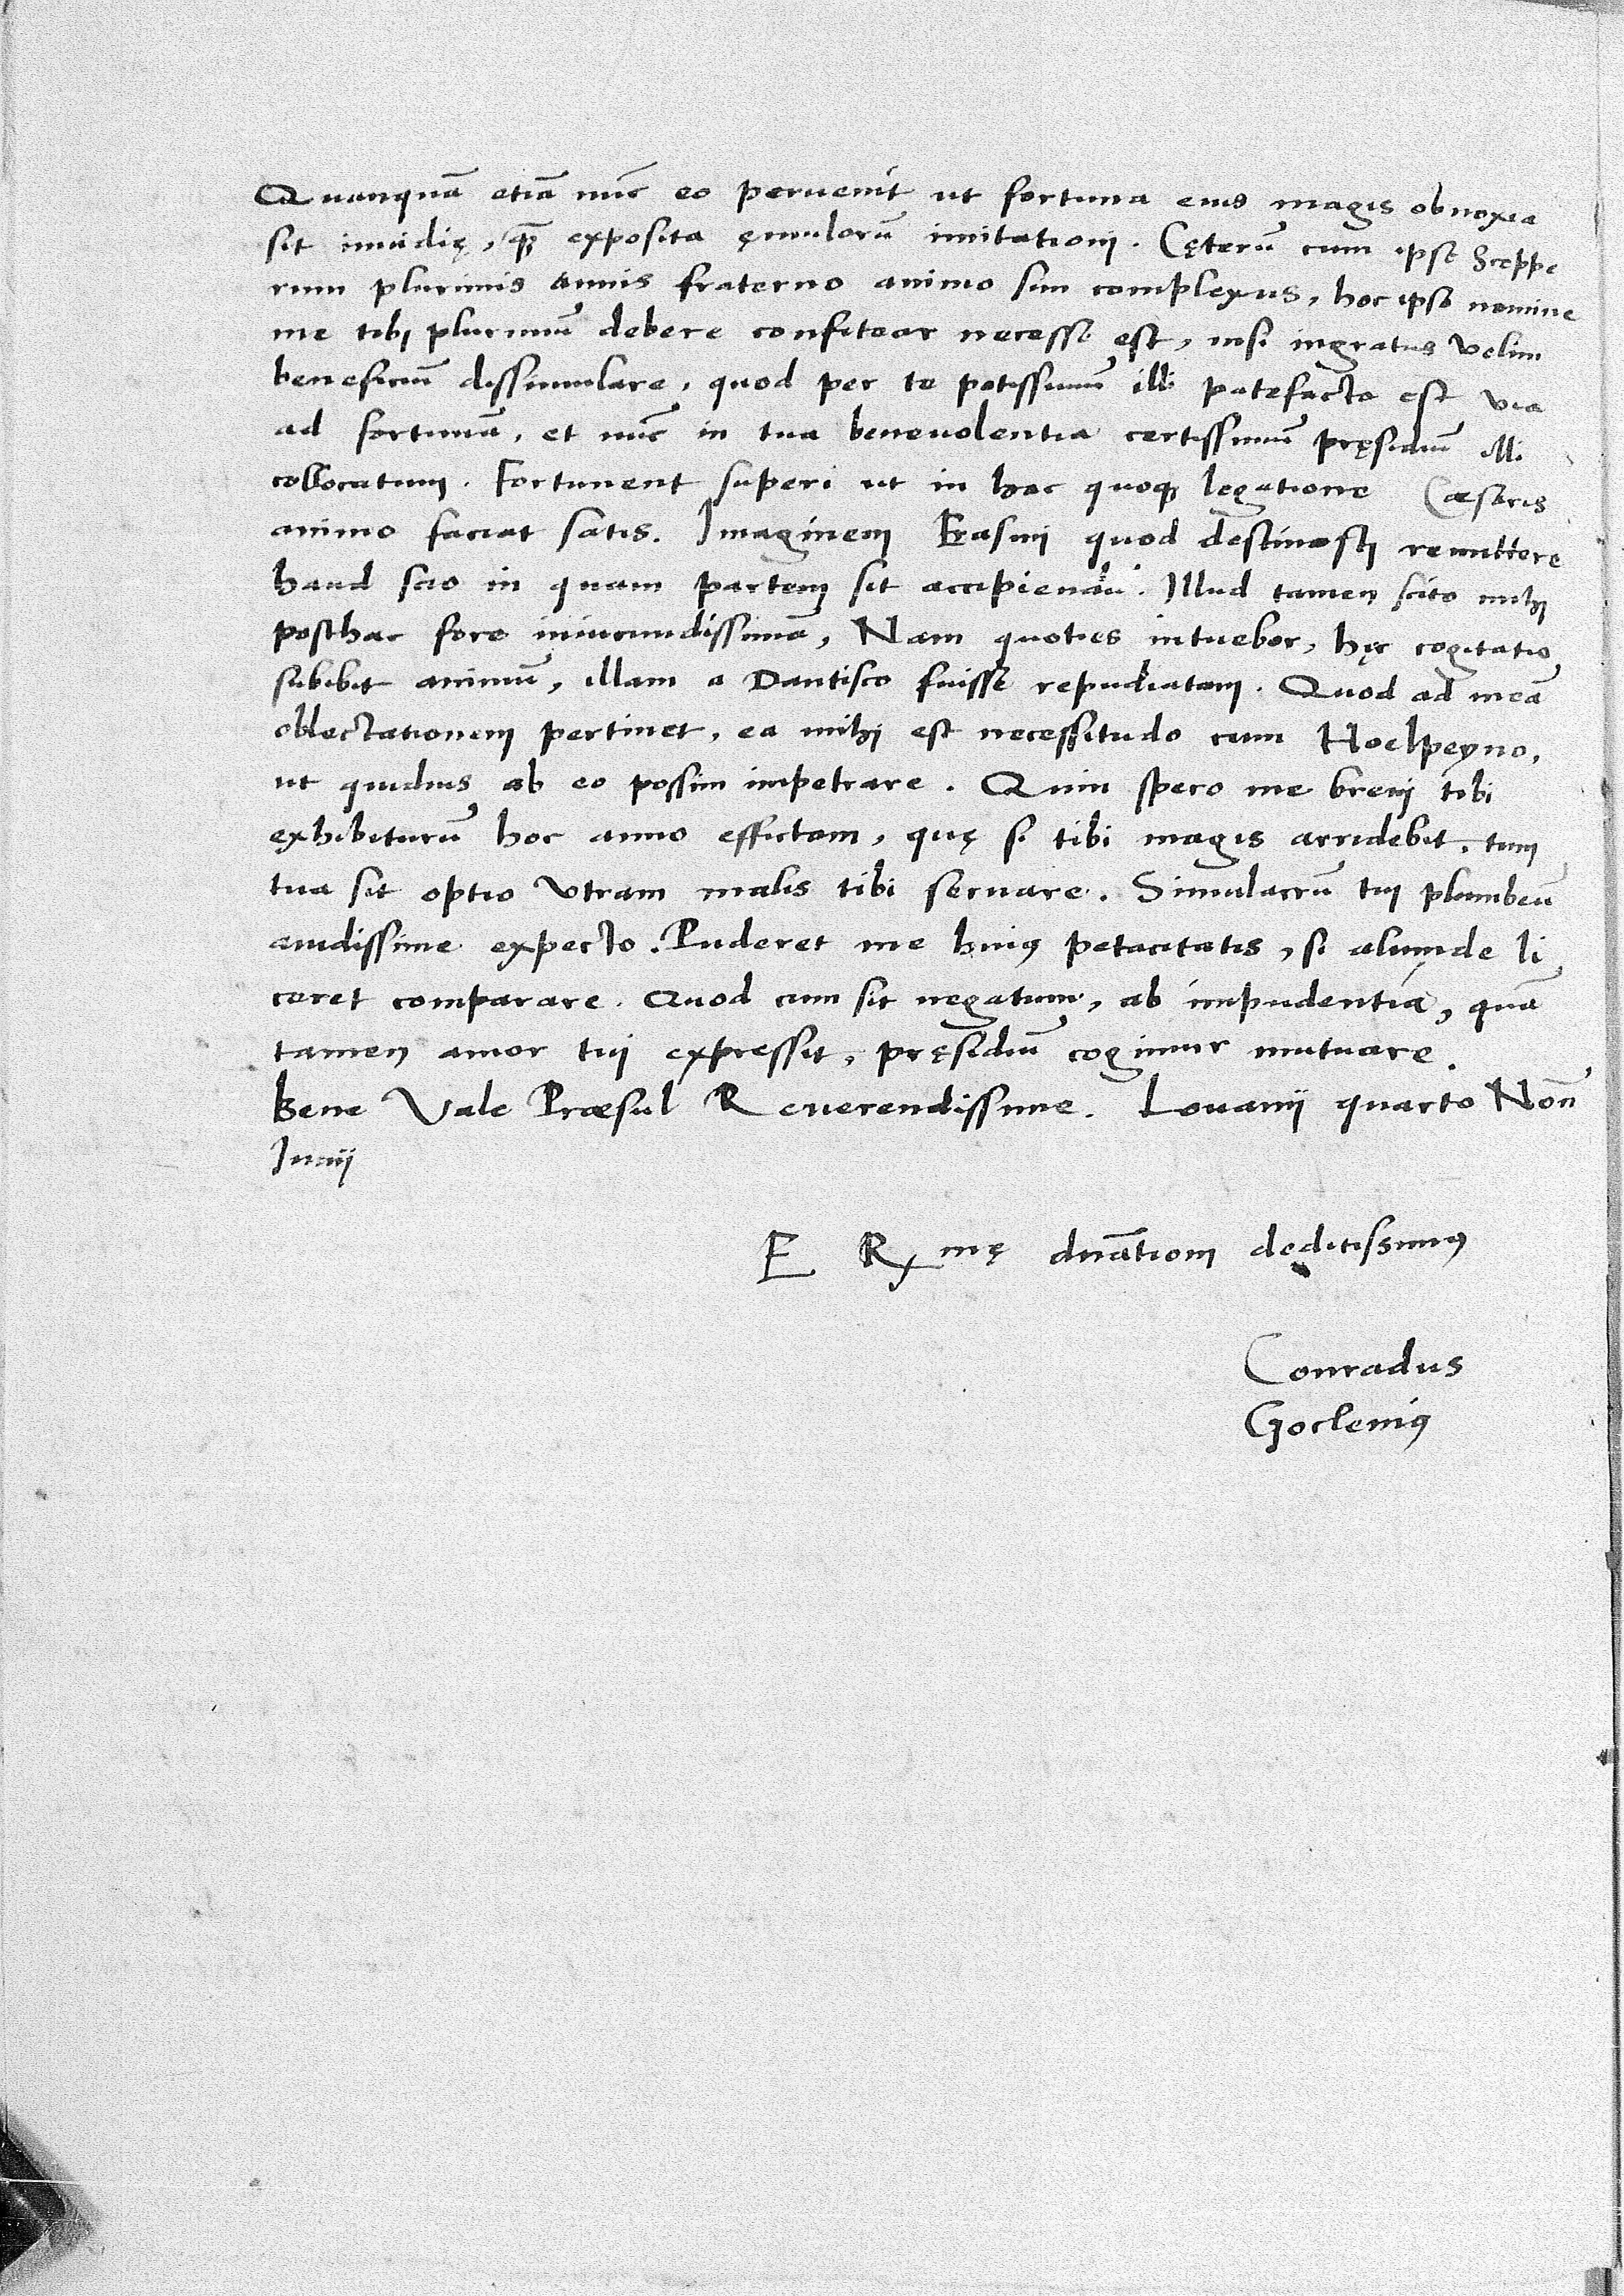 Quanquā etiā nūc eo peruenit ut fortuna eius magis obnoxia
sit inuidię, q̄ exposita ęmulorū imitationi. Cęterū cum ipse Sceppe
rum plurimis annis fraterno animo sim complexus, hoc ipso nomine
me tibi plurimū debere confitear necesse est, nisi ingratus velim
beneficiū dissimulare, quod per te potissimū illi patefacta est via
ad fortunā, et nūc in tua beneuolentia certissimū pręsidiū illi
collocatum. Fortunent superi ut in hac quoq; legatione Cæsaris
animo faciat satis. Imaginem Erasmi quod destinasti remittere
haud scio in quam partem sit accipiendū. Illud tamen scito mihi
posthac fore iniucundissimā, Nam quoties intuebor, hęc cogitatio
subibit animū, illam a Dantisco fuisse repudiatam. Quod ad meā
oblectationem pertinet, ea mihi est necessitudo cum Hoelpeyno,
ut quiduis ab eo possim impetrare. Quin spero me breui tibi
exhibiturū hoc anno effictam, quę si tibi magis arridebit, tum
tua sit optio vtram malis tibi seruare. Simulacrū tui plumbeū
auidissime expecto. Puderet me huiꝰ petacitatis, si aliunde li
ceret comparare. Quod cum sit negatum, ab impudentia, quā
tamen amor tui expressit, pręsidiū cogimur mutuare.
Bene Vale Præsul Reuerendissime. Louanii quarto Noñ
Junij
E Rmę dnātioni deditissimꝰ
Conradus
Gocleniꝰ